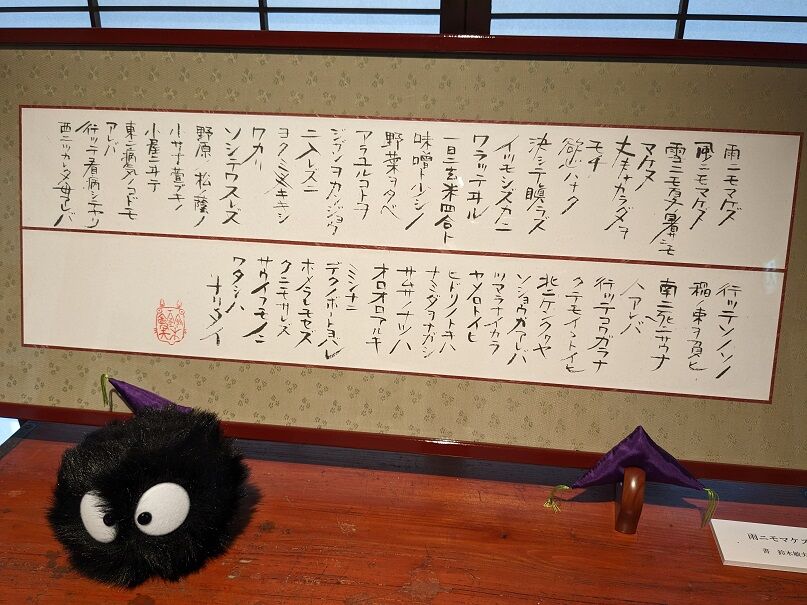 雨ニモマケズ
風ニモマケズ
雪ニモ夏ノ暑サニモ
マケヌ
丈夫ナカラダヲ
モチ
欲ハナク
決シテ瞋ラズ
イツモシズカニ
ワラッテヰル
一日ニ玄米四合ト
味噌ト少シノ
野菜ヲタベ
アラユルコトヲ
ジブンヲカンジョウ
ニ入レズニ
ヨクミキキシ
ワカリ
ソシテワスレズ
野原ノ松ノ蔭ノ
小サナ萱ブキノ
小屋ニヰテ
東ニ病気ノコドモ
アレバ
行ッテ看病シテヤリ
西ニツカレタ母アレバ
行ッテソノ
稲ノ束ヲ負ヒ
南ニ死ニサウナ
人アレバ
行ッテコワガラナ
クテモイヽトイヒ
北ニケンクヮヤ
ソショウガアレバ
ツマラナイカラ
ヤメロトイヒ
ヒドリノトキハ
ナミダヲナガシ
サムサノナツハ
オロオロアルキ
ミンナニ
デクノボートヨバレ
ホメラレモセズ
クニモサレズ
サウイフモノニ
ワタシハ
ナリタイ
雨ニモマケズ
書 鈴木敏夫